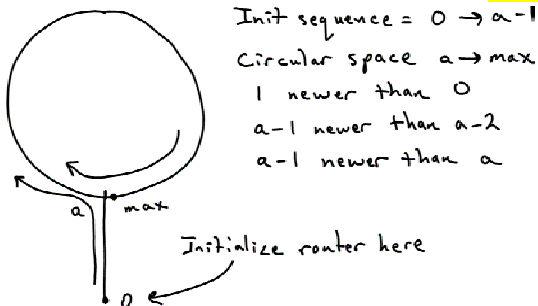 Init sequence = 0 → a-1
Circular space a → max
1 newer than 0
a-1 newer than a-2
a-1 newer than a
a
max
Initialize router here
0